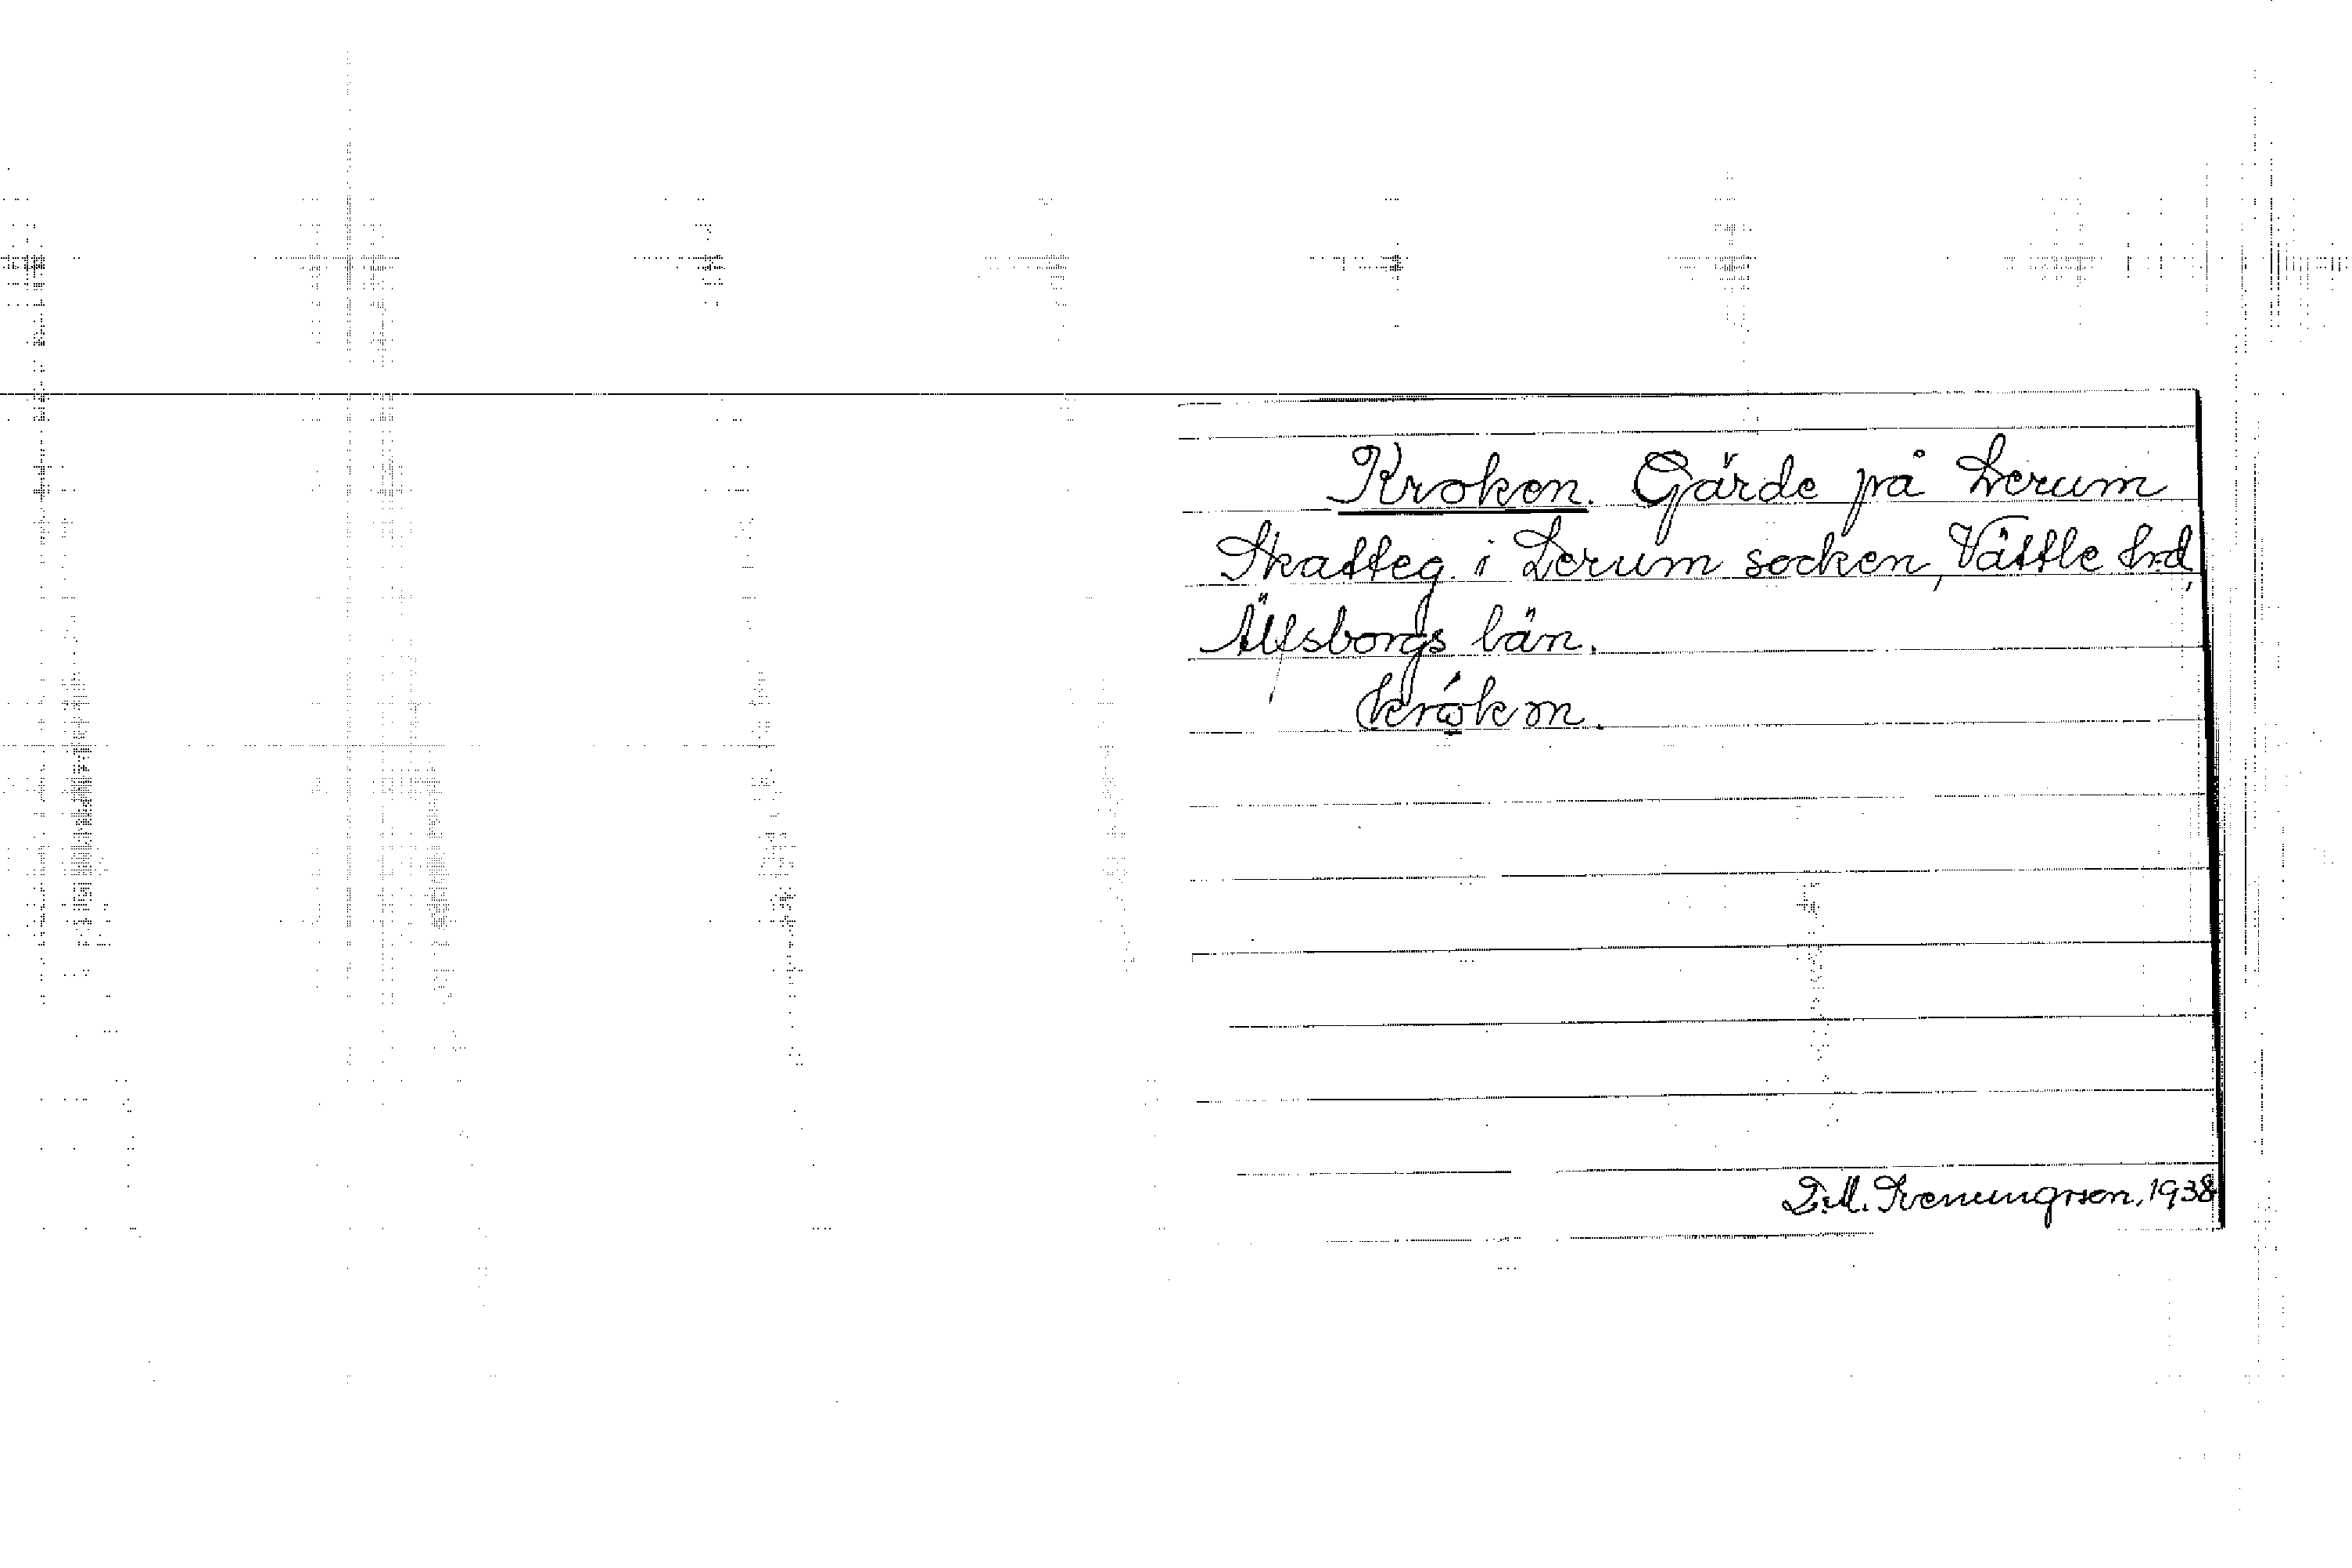 Kroken. Gärde på Lerum
Skatteg. i Lerum socken, Vättle hd,
Älfsborgs län.
krókm.
1938